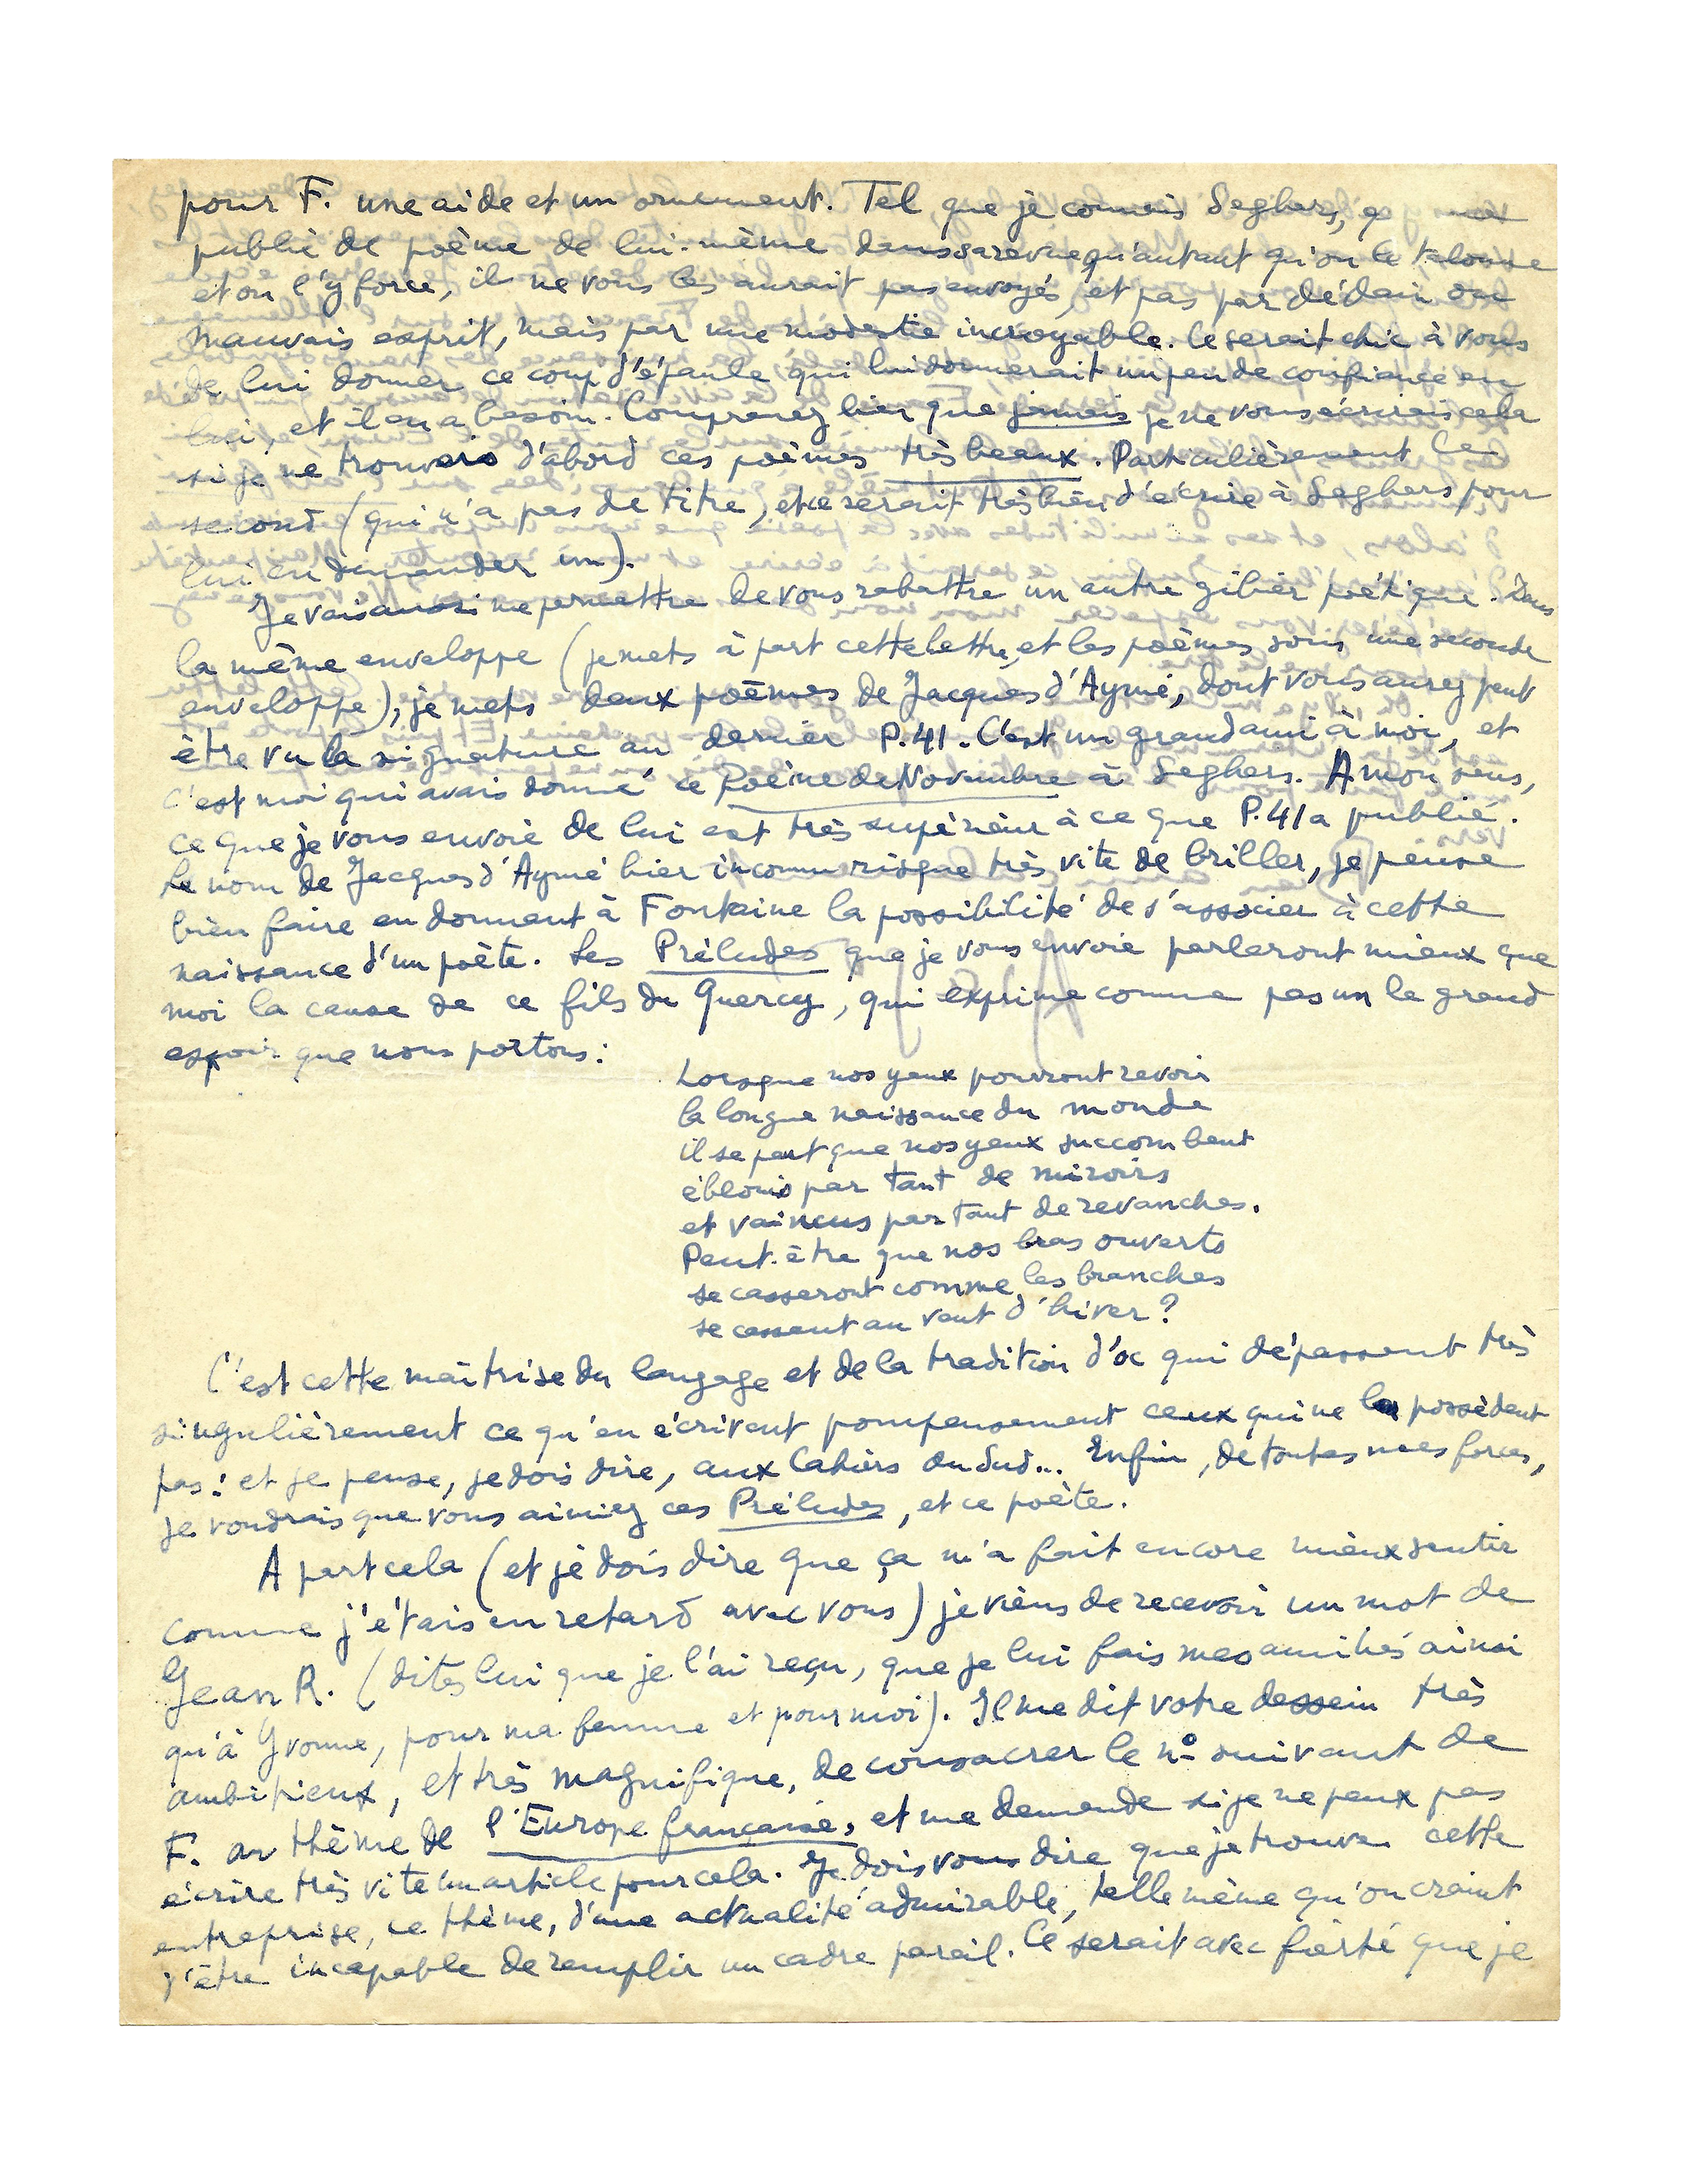 pour F. une aide et un ornement. Tel que je connais Seghers, q ne
publie de poème de lui-même dans sa revue qu'autant qu'on le talonne
et on l'y force, il ne vous les aurait pas envoyés, et pas par dédain ou
mauvais esprit, mais par une modestie incroyable. Ce serait chic à vous
de lui donner ce coup d'épaule qui lui donnerait un peu de confiance en
lui, et il en a besoin. Comprenez bien que jamais je ne vous écrirais cela
si je ne trouvais d'abord ces poèmes très beaux. Particulièrement le
second (qui n'a pas de titre, et ce serait très bien d'écrire à Seghers pour
lui en demander un).
Je vais aussi me permettre de vous rabattre un autre gibier poétique. Dans
la même enveloppe (je mets à part cette lettre, et les poèmes sous une seconde
enveloppe), je mets deux poèmes de Jacques d'Aymé, dont vous aurez peut
être vu la signature au dernier P.41. C'est un grand ami à moi, et
c'est moi qui avais donné ce Poème de Novembre à Seghers. A mon sens,
ce que je vous envoie de lui est très supérieur à ce que P.41 a publié.
Le nom de Jacques d'Aymé hier inconnu risque très vite de briller, je pense
bien faire en donnant à Fontaine la possibilité de s'associer à cette
naissance d'un poète. Les Préludes que je vous envoie parleront mieux que
moi la cause de ce fils du Quercy, qui exprime comme pas un le grand
espoir que nous portons :
Lorsque nos yeux pourront revoir
la longue naissance du monde
il se peut que nos yeux succombent
éblouis par tant de miroirs
et vaincus par tant de revanches.
Peut-être que nos bras ouverts
se casseront comme les branches
se cassent au vent d'hiver ?
C'est cette maîtrise du langage et de la tradition d'oc qui dépassent très
singulièrement ce qu'en écrivent pompeusement ceux qui ne les possèdent
pas : et je pense, je dois dire, aux Cahiers du Sud... Enfin, de toutes mes forces,
je voudrais que vous aimiez ces Préludes, et ce poète.
A part cela (et je dois dire que ça m'a fait encore mieux sentir
comme j'étais en retard avec vous) je viens de recevoir un mot de
Jean R. (dites lui que je l'ai reçu, que je lui fais mes amitiés ainsi
qu'à Yvonne, pour ma femme et pour moi). Il me dit votre dessein très
ambitieux, et très magnifique, de consacrer le nº suivant de
F. au thème de l'Europe française, et me demande si je ne peux pas
écrire très vite un article pour cela. Je dois vous dire que je trouve cette
entreprise, ce thème, d'une actualité admirable, telle même qu'on craint
d'être incapable de remplir un cadre pareil. Ce serait avec fierté que je